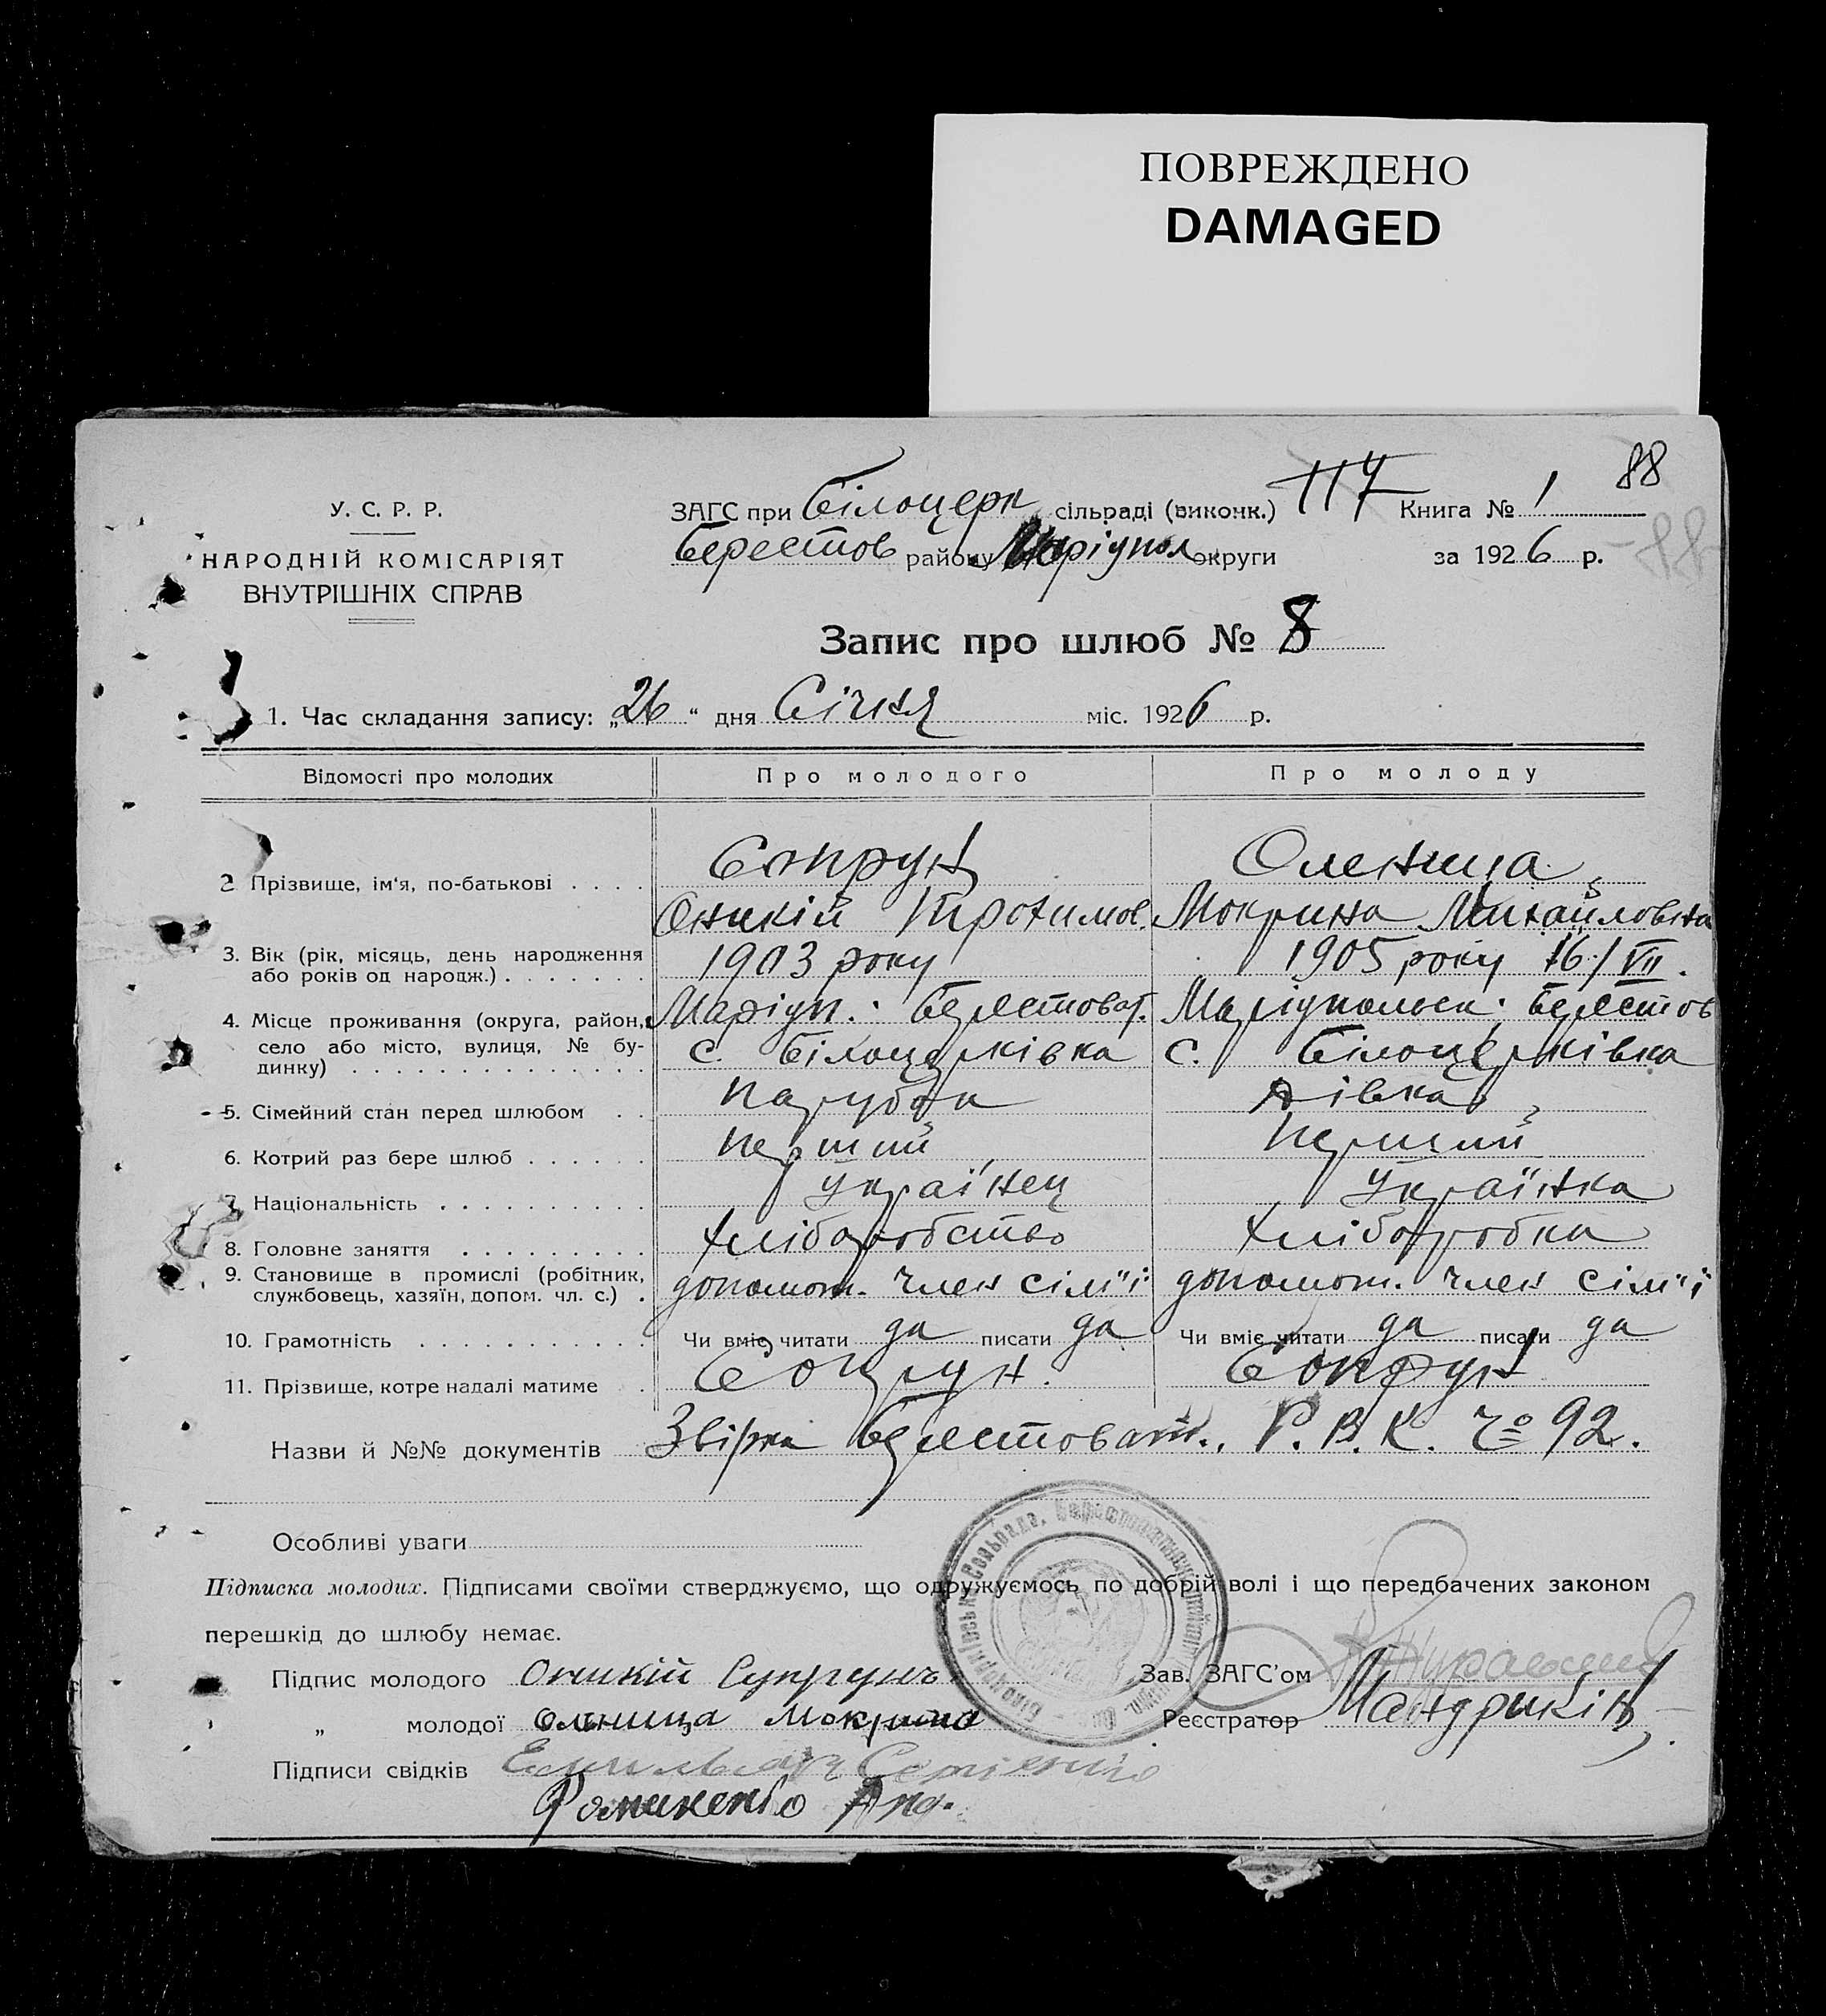 ПОВРЕЖДЕНО
DAMAGED
88
У. С. Р. Р.
ЗАГС при Білоцерк сільраді (виконк.) 117 Книга № 1
НАРОДНІЙ КОМІСАРІЯТ
Берестов району Маріупол округи за 1926 р. 88
ВНУТРІШНІХ СПРАВ
Запис про шлюб № 8
1. Час складання запису: „26“ дня Січня міс. 1926 р.
Відомості про молодих Про молодого Про молоду
Сопрун Оленица
2. Прізвище, ім'я, по-батькові . . . .
Оникій Трохимов. Мокрина Михайловна
3. Вік (рік, місяць, день народження 1903 року 1905 року 16/VII.
або років од народж.) . . . . . . .
4. Місце проживання (округа, район, Маріуп. Берестоват. Маріупольск. Берестов
село або місто, вулиця, № бу- с. Білоцерківка с. Білоцерківка
динку) . . . . . . . . . . . . . .
5. Сімейний стан перед шлюбом . . Парубок Дівка
6. Котрий раз бере шлюб . . . . . . Перший Перший
7. Національність . . . . . . . . . . Українец Українка
8. Головне заняття . . . . . . . . . Хліборобство Хліборобка
9. Становище в промислі (робітник, допомог. член сім"ї допомог. член сім"ї
службовець, хазяїн, допом. чл. с.) .
10. Грамотність . . . . . . . . . . . Чи вміє читати да писати да Чи вміє читати да писати да
11. Прізвище, котре надалі матиме . Сопрун. Сопрун
Назви й №№ документів Звірка Берестоват. Р. В. К. Ч° 92.
Особливі уваги
Підписка молодих. Підписами своїми стверджуємо, що одружуємось по добрій волі і що передбачених законом
перешкід до шлюбу немає.
Підпис молодого Оникій Супрунъ Зав. ЗАГС'ом
„ молодої Олница Мокрина Реєстратор Мандрикін
Підписи свідків
Фоменко